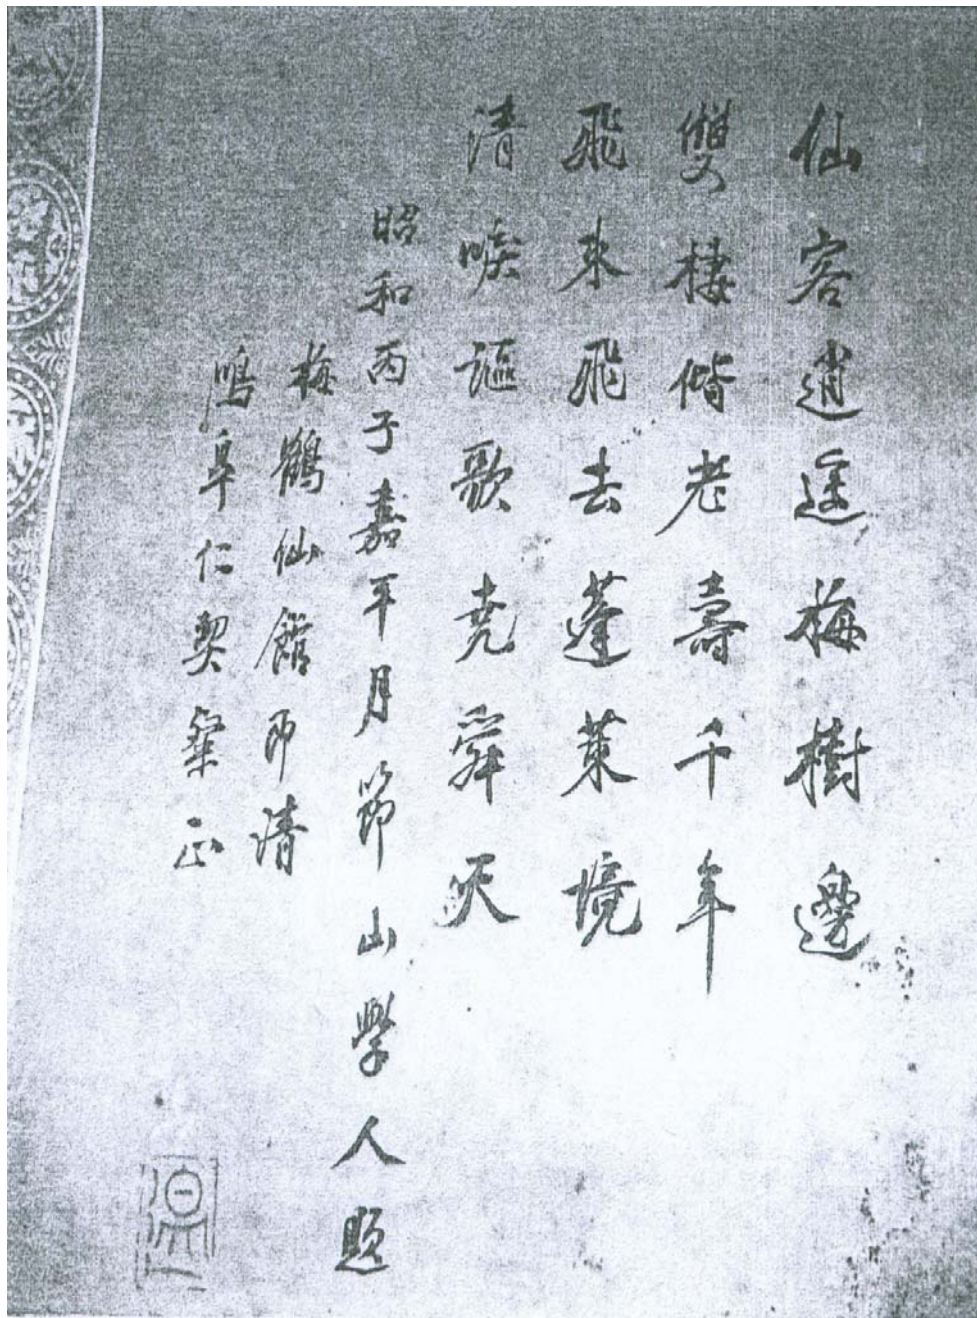 仙客逍遥梅樹邊
雙棲偕老壽千年
飛来飛去蓬莱境
清唳謳歌堯舜天
昭和丙子嘉平月節山學人題
梅鶴仙館即請
鳴皐仁契粲正